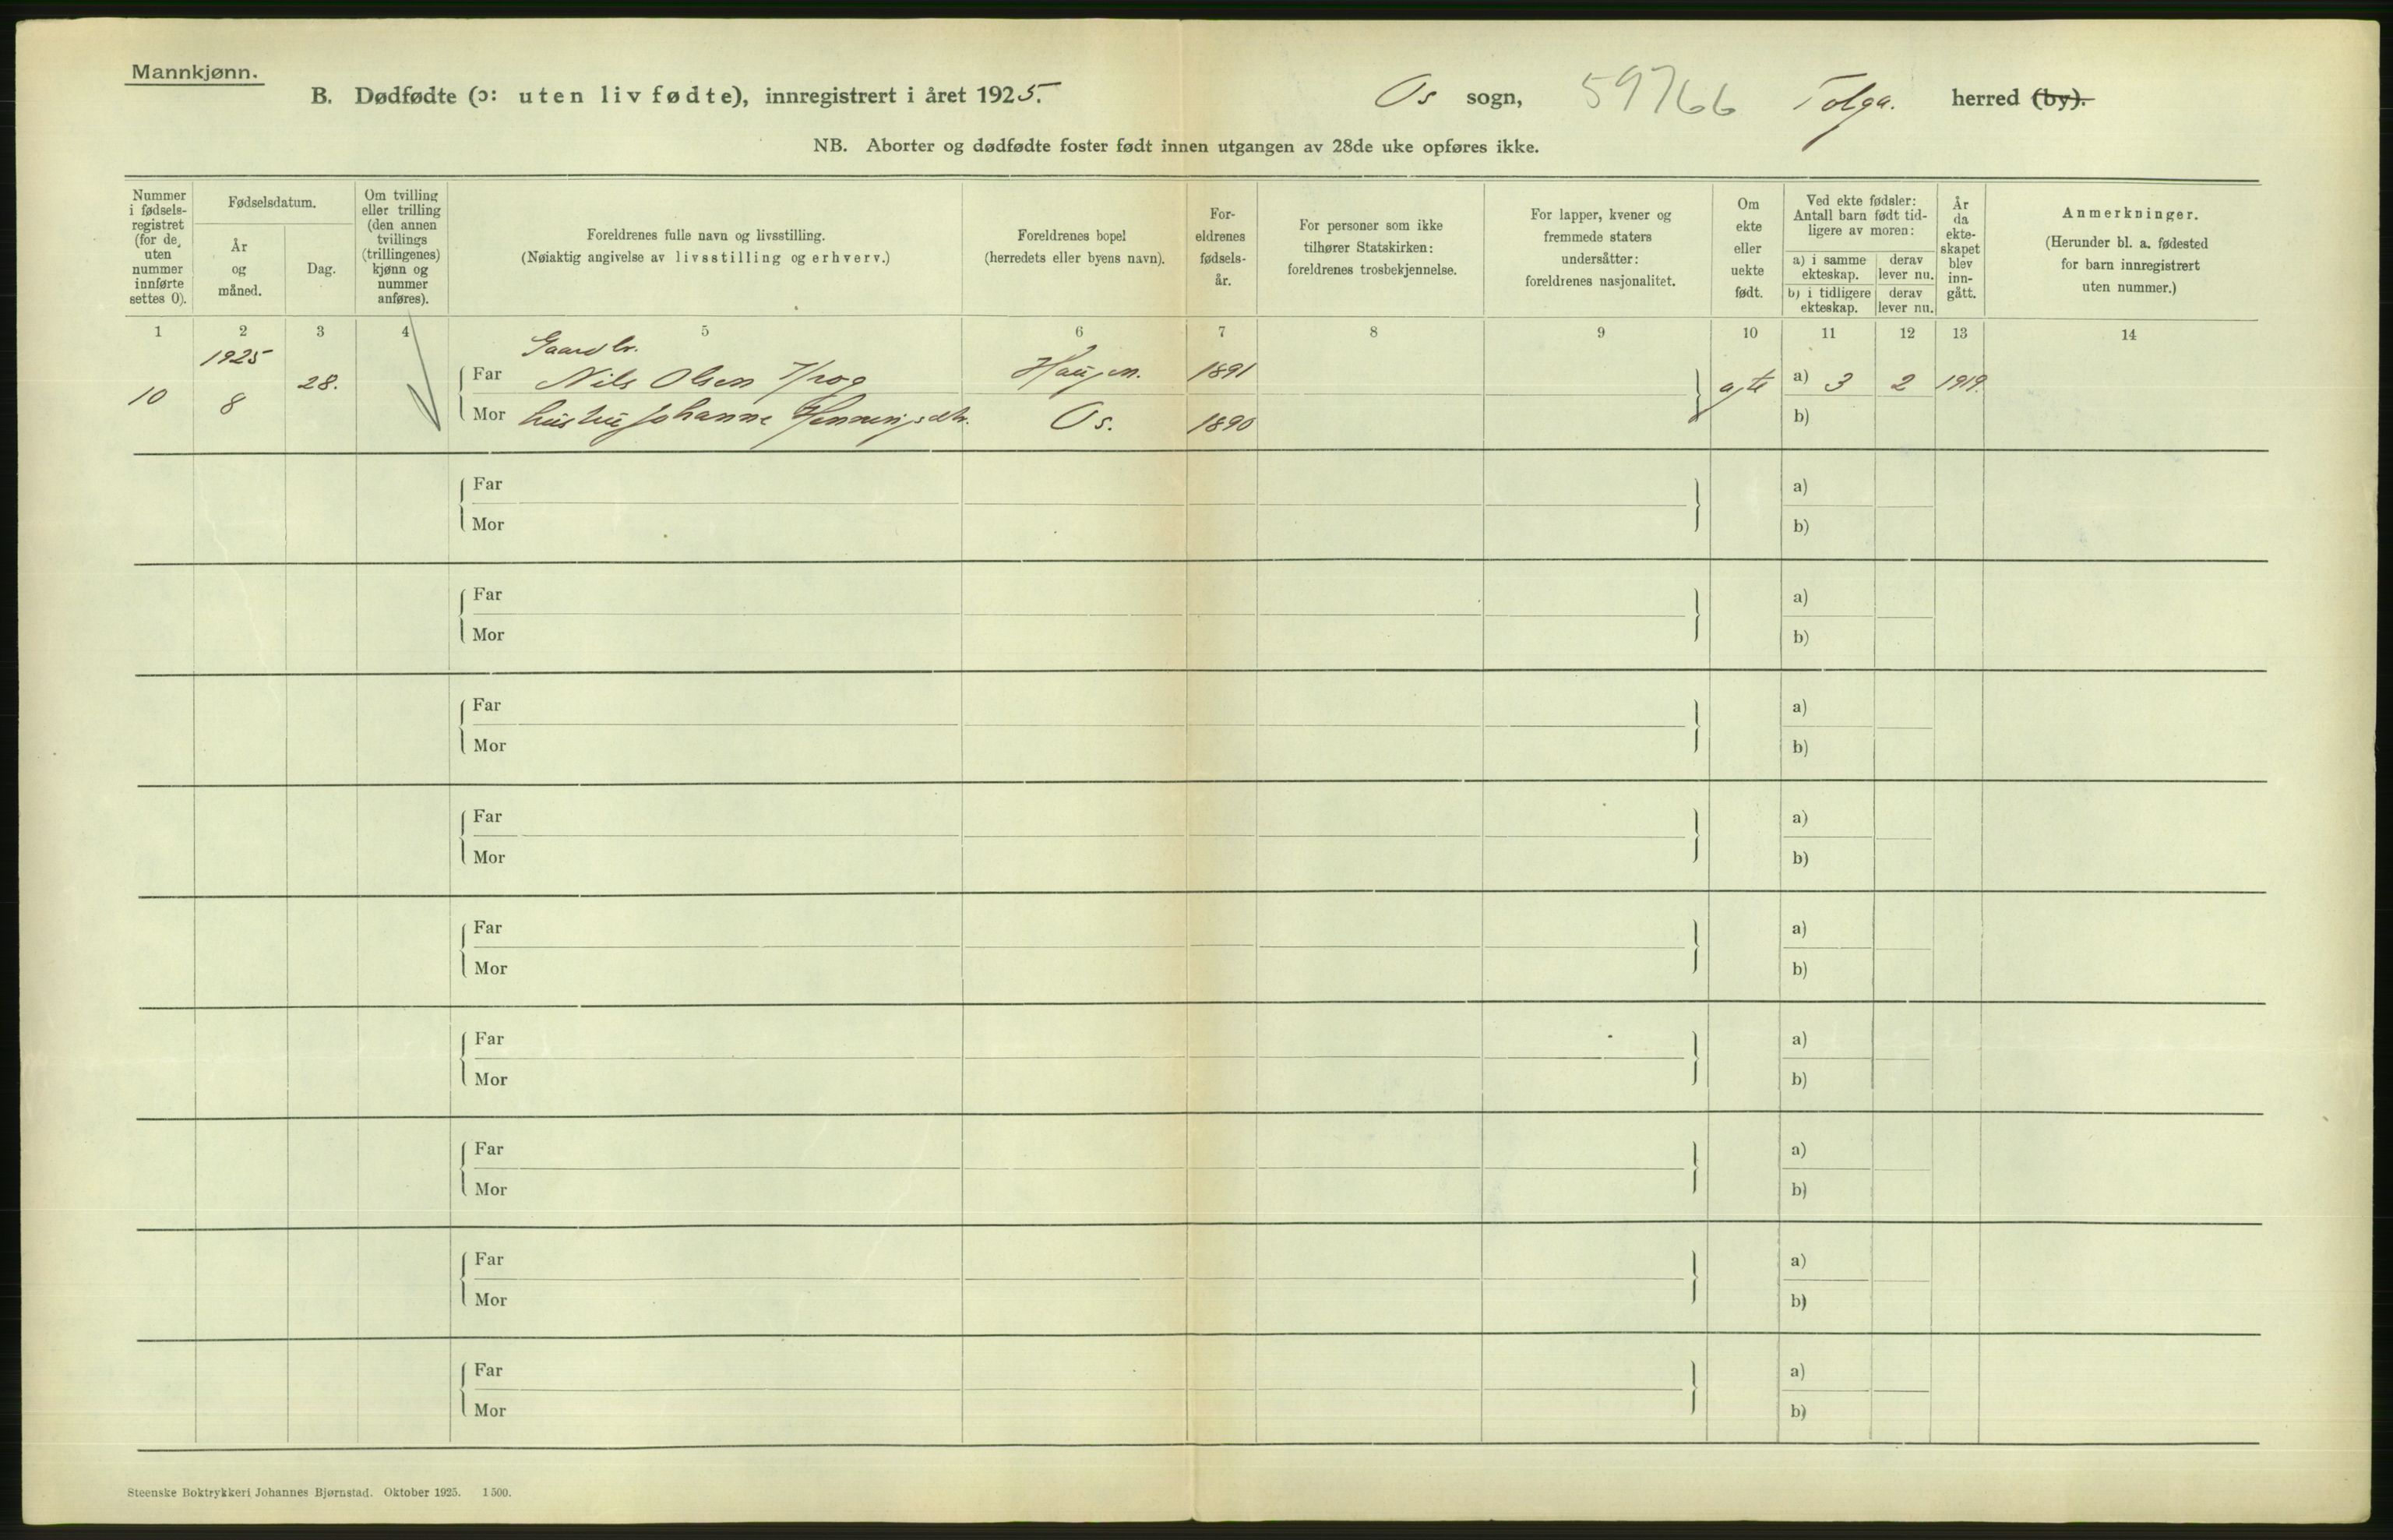 Mannkjønn.
B. Dødfødte (ɔ: uten liv fødte), innregistrert i året 1925.
Os sogn, 59766 Tolga. herred (by).
NB. Aborter og dødfødte foster født innen utgangen av 28de uke opføres ikke.
Nummer i fødsels-
registret
(for de
uten
nummer
innførte
settes 0).
Fødselsdatum.
År
og
måned.
Dag.
Om tvilling
eller trilling
(den annen
tvillings
(trillingenes)
kjønn og
nummer
anføres).
Foreldrenes fulle navn og livsstilling.
(Nøiaktig angivelse av livsstilling og erhverv.)
Foreldrenes bopel
(herredets eller byens navn).
For-
eldrenes
fødsels-
år.
For personer som ikke
tilhører Statskirken:
foreldrenes trosbekjennelse.
For lapper, kvener og
fremmede staters
undersåtter:
foreldrenes nasjonalitet.
Om
ekte
eller
uekte
født.
Ved ekte fødsler:
Antall barn født tid-
ligere av moren:
a) i samme
ekteskap.
derav
lever nu.
b) i tidligere
ekteskap.
derav
lever nu.
År
da
ekte-
skapet
blev
inn-
gått.
Anmerkninger.
(Herunder bl. a. fødested
for barn innregistrert
uten nummer.)
1 2 3 4 5 6 7 8 9 10 11 12 13 14
1925 Gaardbr.
10 8 28. Far Nils Olsen Haugen. 1891 a) 3 2 1919.
Mor Hustru Johanne Henningsdtr. Os. 1890 b)
Far a)
Mor b)
Far a)
Mor b)
Far a)
Mor b)
Far a)
Mor b)
Far a)
Mor b)
Far a)
Mor b)
Far a)
Mor b)
Far a)
Mor b)
Far a)
Mor b)
Steenske Boktrykkeri Johannes Bjørnstad. Oktober 1925. 1500.